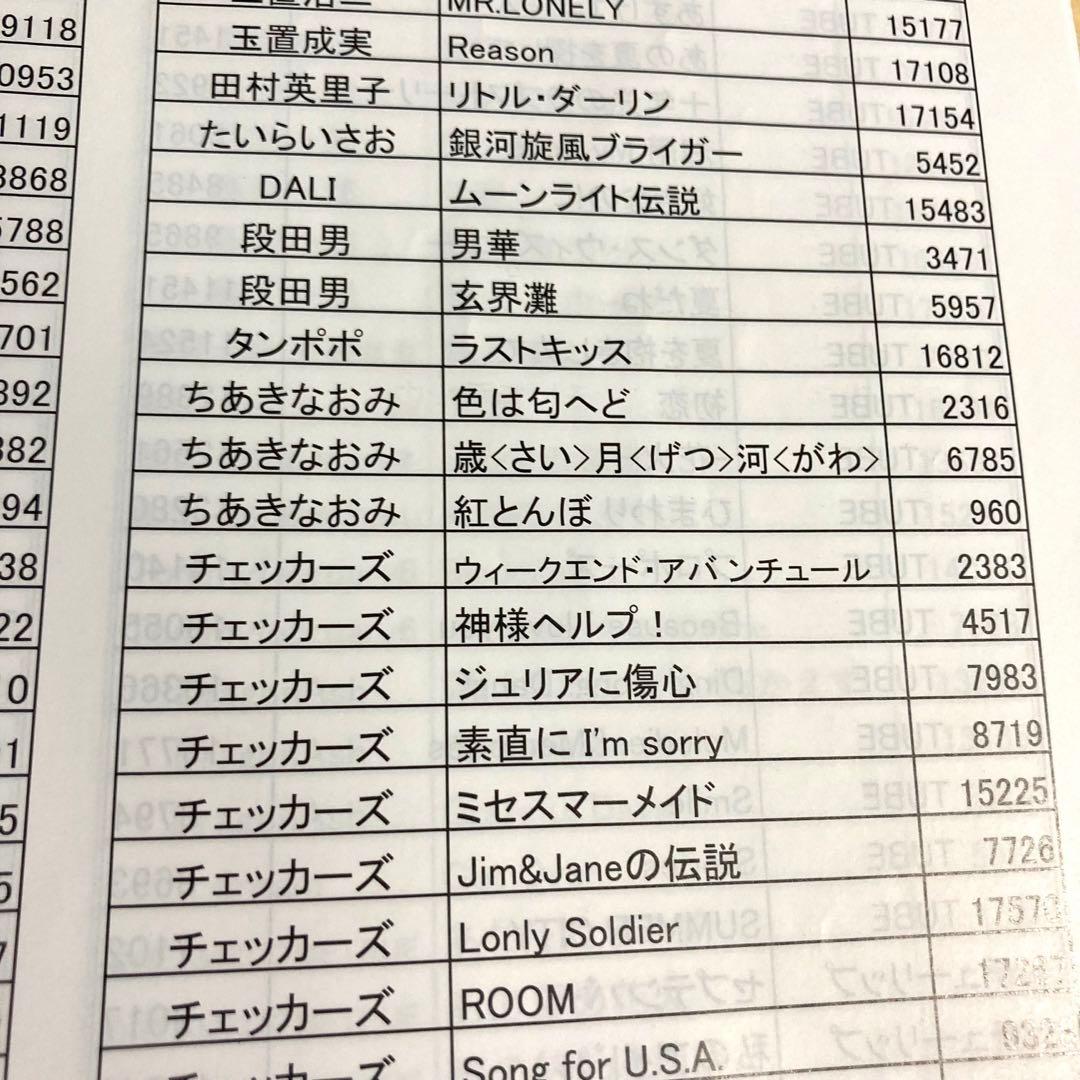 MR.LONELY 15177
9118 玉置成実 Reason 17108
0953 田村英里子 リトル・ダーリン 17154
1119 たいらいさお 銀河旋風ブライガー 5452
8868 DALI ムーンライト伝説 15483
5788 段田男 男華 3471
562 段田男 玄界灘 5957
701 タンポポ ラストキッス 16812
392 ちあきなおみ 色は匂へど 2316
382 ちあきなおみ 歳<さい>月<げつ>河<がわ> 6785
94 ちあきなおみ 紅とんぼ 960
38 チェッカーズ ウィークエンド・アバンチュール 2383
22 チェッカーズ 神様ヘルプ！ 4517
0 チェッカーズ ジュリアに傷心 7983
1 チェッカーズ 素直に I'm sorry 8719
5 チェッカーズ ミセスマーメイド 15225
5 チェッカーズ Jim&Janeの伝説 7726
7 チェッカーズ Lonly Soldier 17570
チェッカーズ ROOM
チェッカーズ Song for U.S.A.